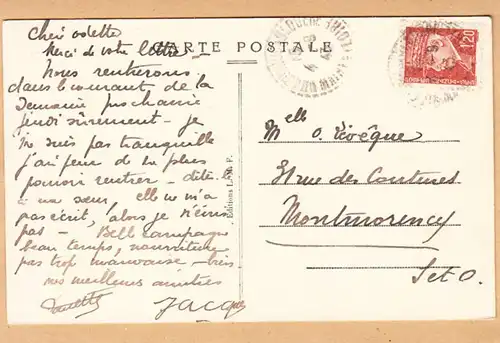 CARTE POSTALE
Chère odette
Merci de votre lettre
Nous rentrerons
dans le courant de la
Semaine prochaine
jeudi sûrement - je
ne suis pas tranquille
j'ai peur de ne plus
pouvoir rentrer - dites
à ma sœur, elle ne m'a
pas écrit, alors je n'écris
pas - Belle campagne
beau temps, nourriture
pas trop mauvaise - bien
nos meilleures amitiés
Jacques
Editions L. F.
1,20
Melle O. Levêque
rue des Coutures
Montmorency
Set O.